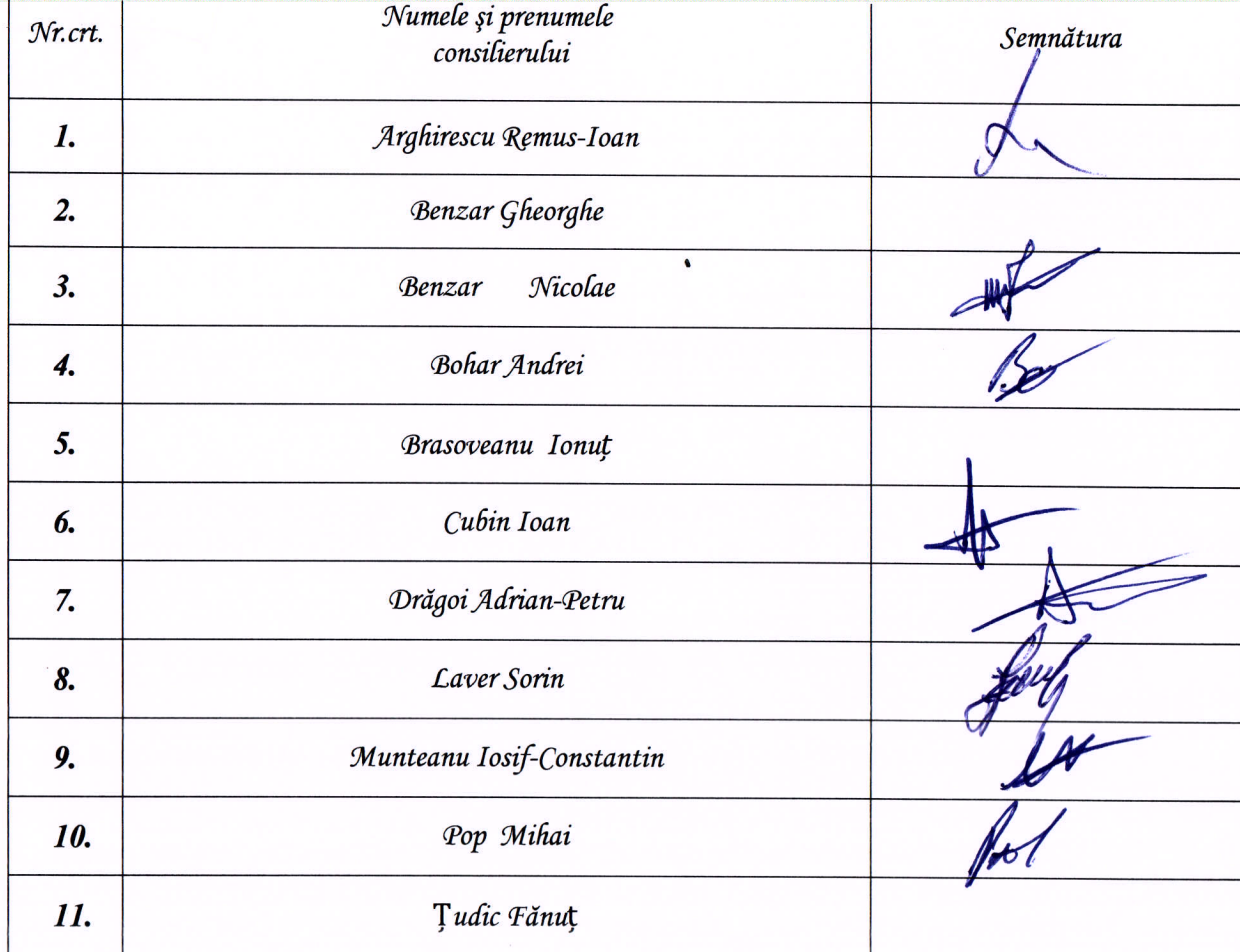 Nr.crt. Numele și prenumele consilierului Semnătura
1. Arghirescu Remus-Ioan
2. Benzar Gheorghe
3. Benzar Nicolae
4. Bohar Andrei
5. Brasoveanu Ionuț
6. Cubin Ioan
7. Drăgoi Adrian-Petru
8. Laver Sorin
9. Munteanu Iosif-Constantin
10. Pop Mihai
11. Țudic Fănuț